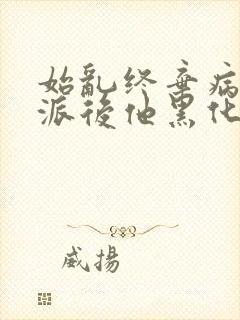 始亂終棄病
派後他黑化
威揚